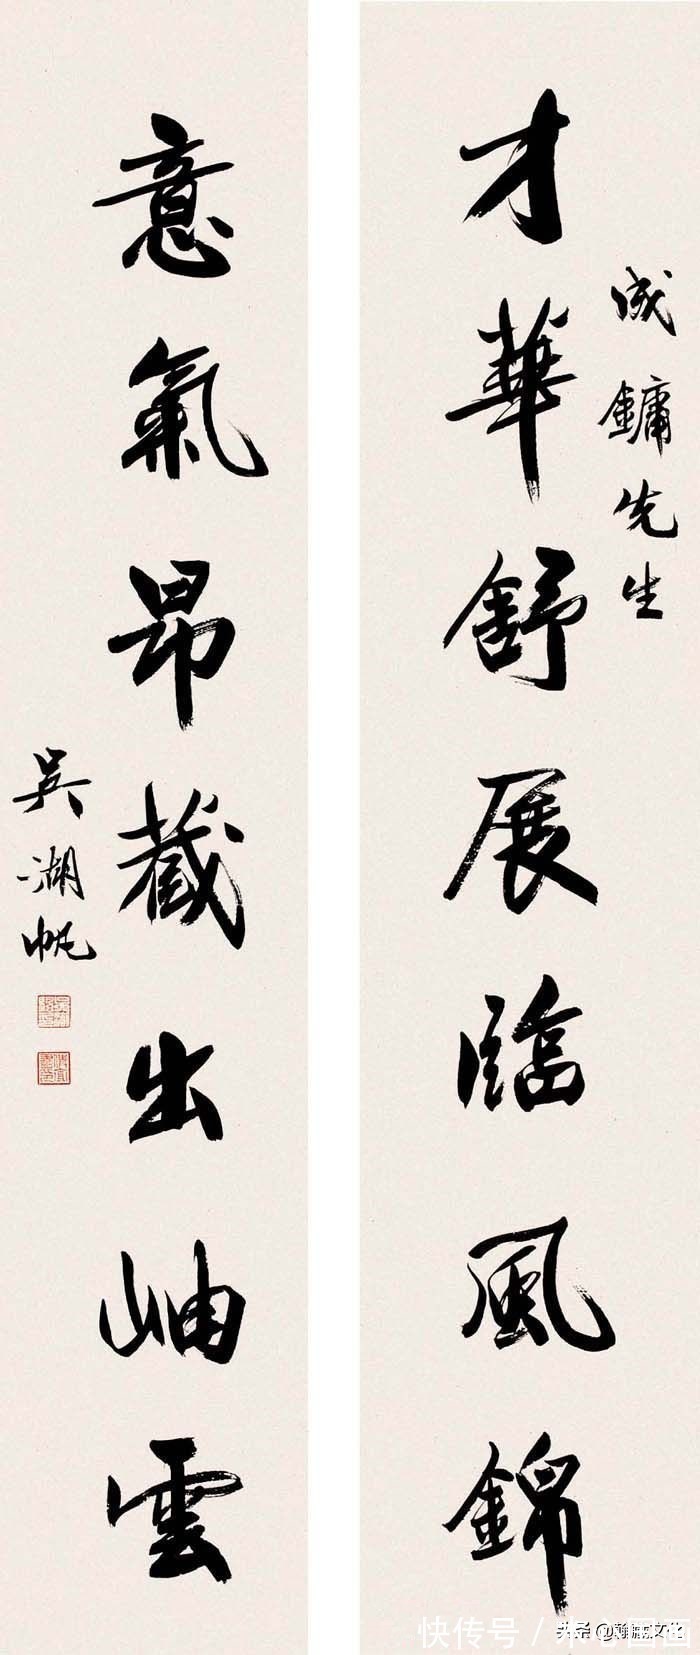 成鏞先生
才華舒展臨風錦
意氣昂藏出岫雲
吳湖帆
快传号 /